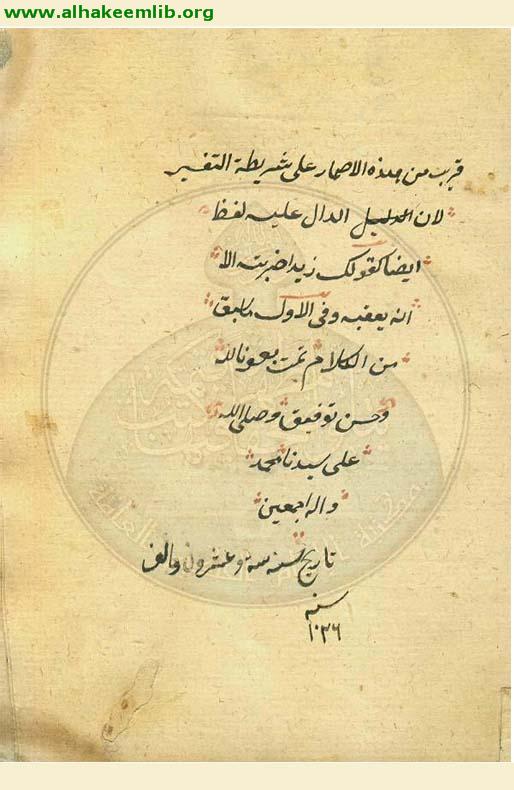 www.alhakeemlib.org
قريب من هذه الاضمار على شريطة التفسير
لان الدليل الدال عليه لفظ
ايضا كقولك زيدا ضربته الا
انه يعقبه وفي الاول يسبق
من الكلام تمت بعون الله
وحسن توفيق وصلى الله
على سيدنا محمد
واله اجمعين
تاريخ سنه سة وعشرون والف
سنه
١٠٢٦